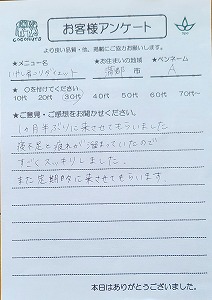 cocokuru
お客様アンケート
より良い品質・他、掲載にご協力お願いします。
★メニュー名 ★お住まいの地域 ★ペンネーム
蒲郡 市 A
★○を付けてください
10代 20代 30代 40代 50代 60代 70代~
★ご意見・ご感想をお聞かせください。
1ヶ月半ぶりに来させてもらいました。
寝不足と疲れが溜まっていたので
すごくスッキリしました。
また定期的に来させてもらいます。
本日はありがとうございました。